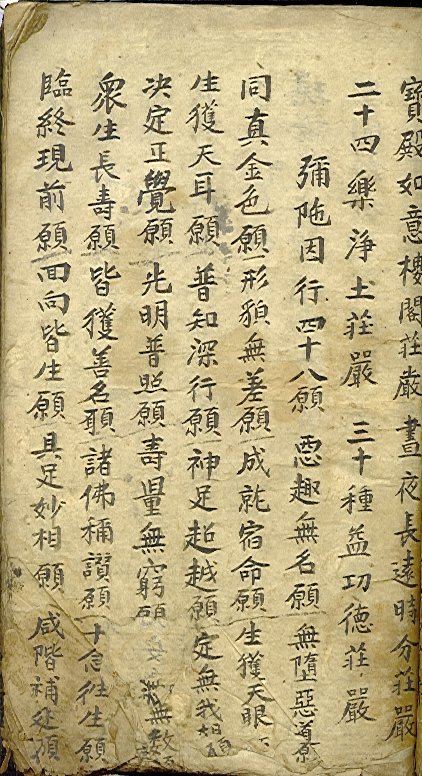 寶殿如意樓閣莊嚴 晝夜長遠時分莊嚴
二十四樂淨土莊嚴 三十種益功德莊嚴
彌陁因行四十八願 惡趣無名願 無墮惡道願
同真金色願 形貌無差願 成就宿命願 生獲天眼
生獲天耳願 普知深行願 神足超越願 定無我
決定正覺願 光明普照願 壽量無窮願 無數
衆生長壽願 皆獲善名願 諸佛稱讃願 十念往生願
臨終現前願 囬向皆生願 具足妙相願 咸階補處願